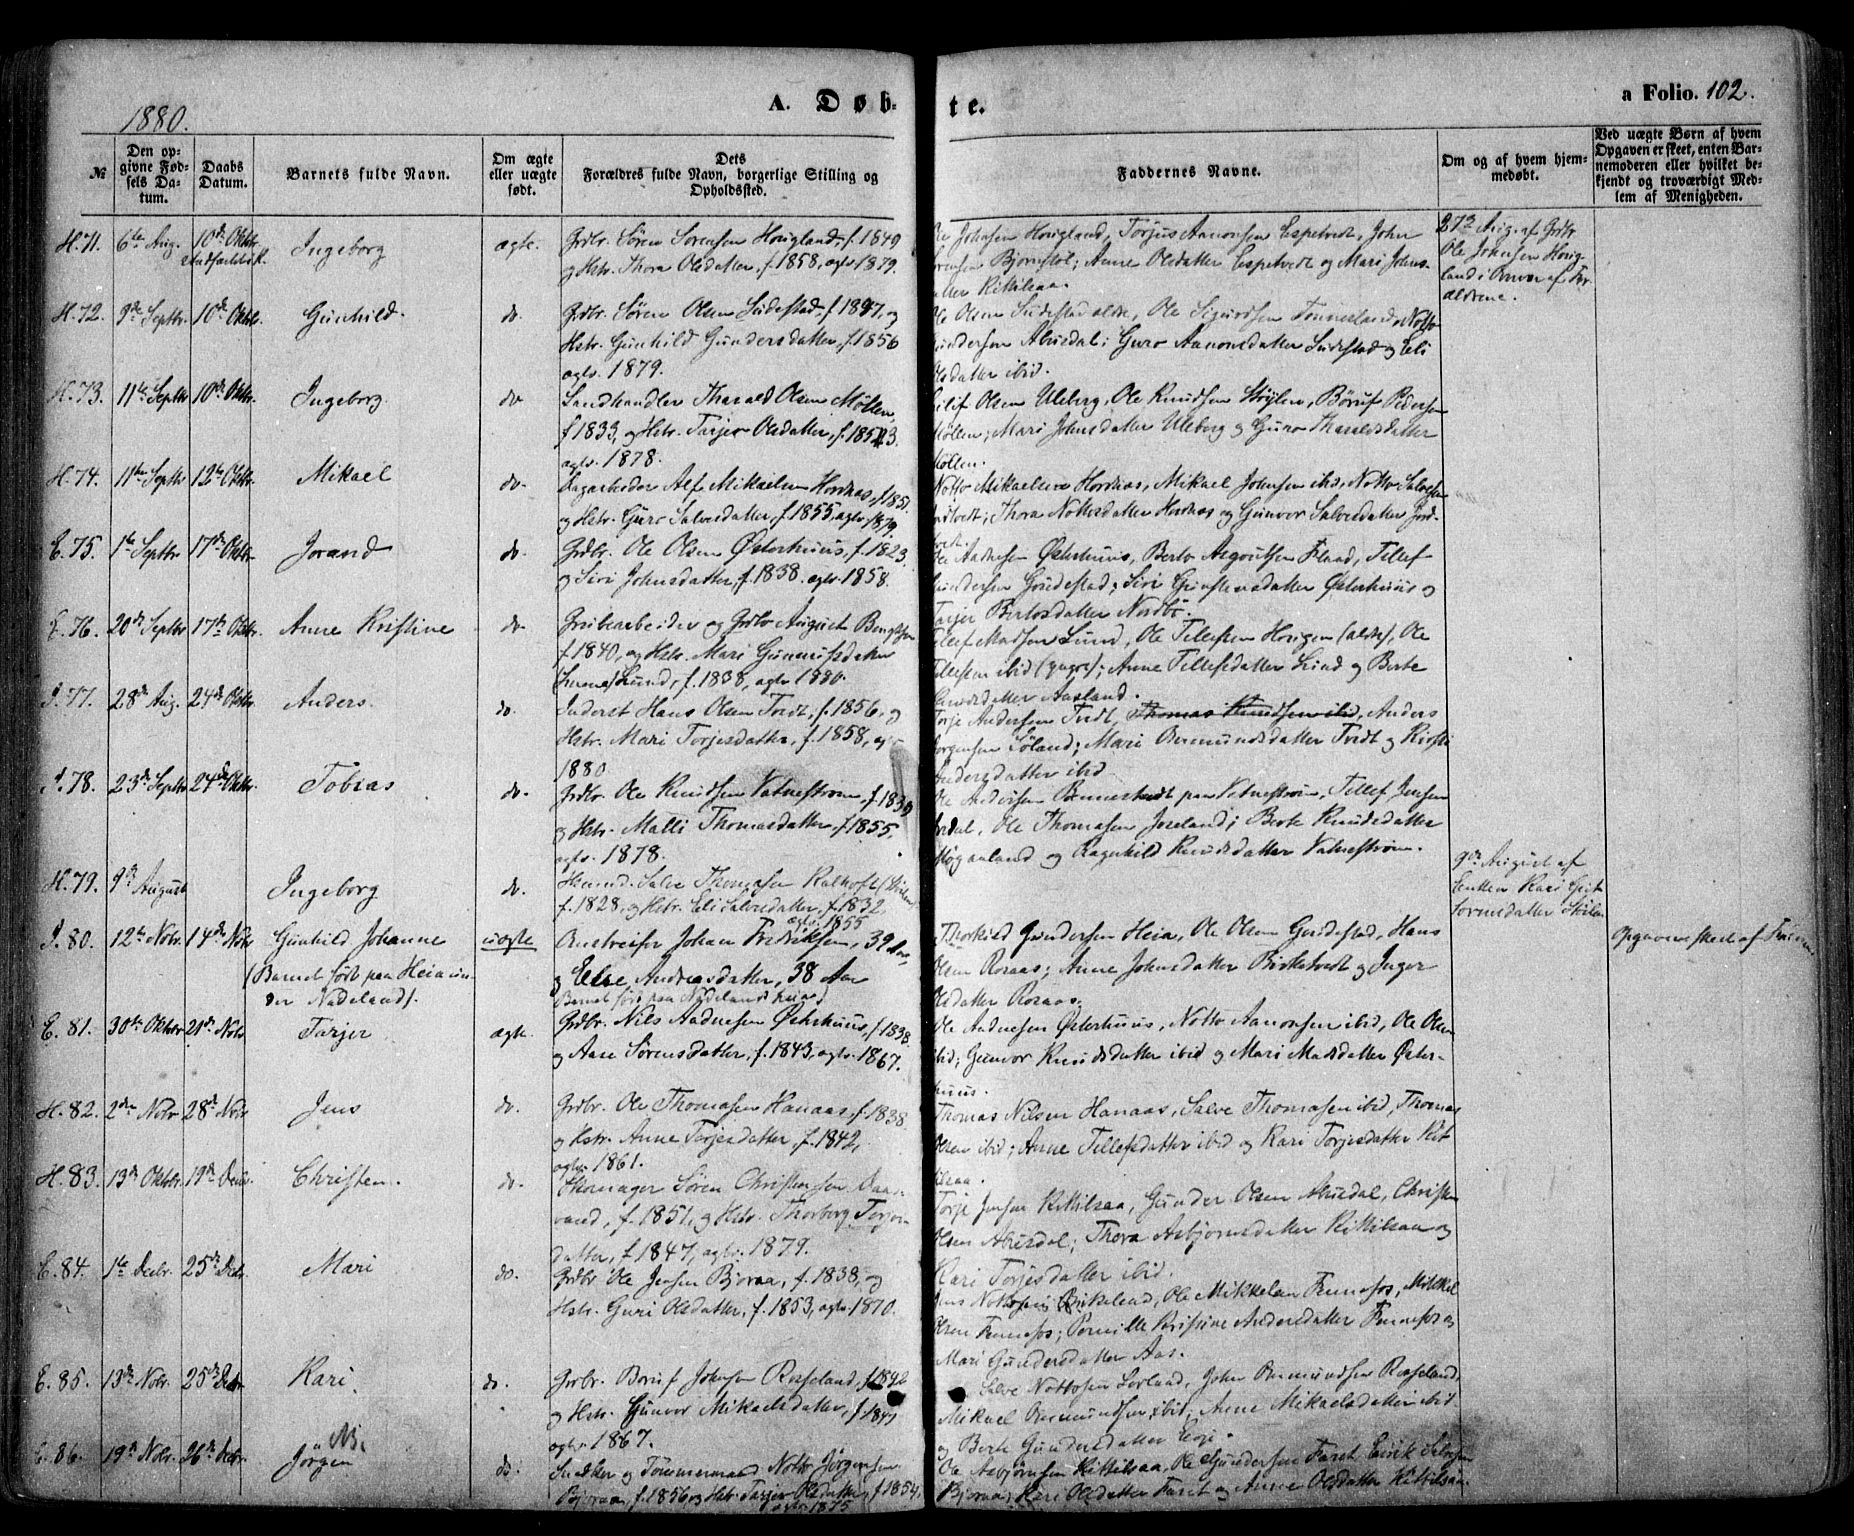 1880.
A. Døb-
te.
a Folio. 102.
№
Den opgivne Fødsels Datum.
Daabs Datum.
Barnets fulde Navn.
Om ægte eller uægte født.
Dets Forældres fulde Navn, borgerlige Stilling og Opholdssted.
Faddernes Navne.
Om og af hvem hjemmedøbt.
Ved uægte Børn af hvem Opgaven er skeet, enten Barnemoderen eller hvilket bekjendt og troværdigt Medlem af Menigheden.
H. 71. 6te Aug. 10de Oktbr. Ingeborg ægte.
Grdbr. Sören Sorensen Hougland, f. 1849
og Hstr. Thora Olsdatter, f. 1858, agtv. 1879.
Ole Johnsen Hougland, Torjus Aanonsen Espetvedt, John
Sorensen Bjørnstøl; Anne Olsdatter Espetvedt og Mari Johns
datter Kittilsaa.
Aug. af Grdbr.
Ole Johnsen Houg-
land i Nærvær af For
ældrene.
H. 72. 9de Septbr. 10de Oktbr. Gunhild. do.
Grdbr. Sören Olsen Sudestad, f. 1847, og
Hstr. Gunhild Gundersdatter, f. 1856
agtv. 1879.
Ole Olsen Sudestad ældre, Ole Sigurdsen Tonnesland, Notto
Gundersen Abusdal; Guro Aanonsdatter Sudestad og Eli
Olsdatter ibid.
H. 73. 11te Septbr 10de Oktbr. Ingeborg do
Landhandler Tharald Olsen Møllen,
f. 1833, og Hstr. Tarjer Olsdatter, f. 1853.
agtv. 1878.
Eilif Olsen Uleberg, Ole Knudsen Støylen, Böruf Pedersen
Møllen; Mari Johnsdatter Uleberg og Guro Tharaldsdatter
Møllen.
H. 74. 11te Septbr 12te Oktbr. Mikael do.
Lagarbeider Alf Mikaelsen Hordnæs, f. 1851
og Hstr. Guro Salvesdatter, f. 1855, agtv. 1879.
Notto Mikaelsen Hordnæs, Mikael Johnsen ibid, Notto Salvesen
Thora Nottosdatter Hordnæs og Gunvor Salvesdatter
E. 75. 1te Septbr 17de Oktbr. Jorand do.
Grdbr. Ole Olsen Østerhuus, f. 1823
og Siri Johnsdatter, f. 1838. agtv. 1858.
Ole Aadnesen Østerhuus, Berto Asgoutsen Flaad, Tellef
Gundersen Goudestad; Siri Gunstensdatter Østerhuus og
Tarjer Bertosdatter Nordbö.
E. 76. 20de Septbr 17de Oktbr. Anne Kristine do.
Grubearbeider og Grdbr August Bengtsen
f. 1840, og Hstr. Mari Gunnufsdatter
Lund, f. 1838, agtv. 1880.
Tellef Madsen Lund, Ole Tellefsen Hougen (ældre), Ole
Tellefsen ibid (yngre); Anne Tellefsdatter Lund og Berte
Knudsdatter Aasland.
I. 77. 28de Aug. 24de Oktbr. Anders. do.
Inderst Hans Olsen Tvedt, f. 1856, og
Hstr. Mari Torjesdatter, f. 1858, agtv.
1880
Torje Andersen Tvedt, Thomas Knudsen ibid, Anders
Jørgensen Söland; Mari Aamundsdatter Tvedt og Kirsti
Andersdatter ibid
I. 78. 23de Septbr 24de Oktbr. Tobias do.
Grdbr. Ole Knudsen Vatnestrøm, f. 1839
og Hstr. Malli Thomasdatter, f. 1855,
agtv. 1878.
Ole Andersen paa Vatnestrøm, Tellef Jensen
Ole Thomasen Joreland; Berte Knudsdatter
Høgaaland og Ragnhild Knudsdatter Vatnestrøm.
H. 79. 9de August Ingeborg do.
Huusmd. Salve Thomasen Kalhoft
f. 1828, og Hstr. Eli Salvesdatter, f. 1832,
agtv. 1855
9de August af
Enken Kari
tormsdatter
I. 80. 12te Novbr. 14de Novbr Gunhild Johanne uægte
(Barnet født paa Heia un-
der Nadeland).
Johan Fredriksen, 39 Aar,
og Else Andreasdatter, 38 Aar
Barnet født paa Nadelands heia
Thorkild Gundersen Heia, Ole Olsen Goudestad, Hans
Olsen Roraas; Anne Johnsdatter Birketvedt og Inger
Olsdatter Roraas.
Opgaven skeet af
E. 81. 30te Oktbr 21de Novbr Tarjer ægte.
Grdbr. Nils Aadnesen Østerhuus, f. 1838.
og Aase Sörensdatter, f. 1843, agtv. 1867.
Ole Aadnesen Østerhuus, Notto Aanonsen ibid, Ole Olsen
ibid; Gunvor Knudsdatter ibid og Mari Madsdatter Øster-
huus.
H. 82. 2den Novbr 28de Novbr Jens do.
Grdbr. Ole Thomasen Hanaas, f. 1838
og Hstr. Anne Torjesdatter, f. 1842,
agtv. 1861.
Thomas Nilsen Hanaas, Salve Thomasen ibid, Thomas
Olsen ibid; Anne Tellefsdatter ibid og Kari Torjesdatter Kit
tilsaa.
H. 83. 13de Oktbr. 19de Decbr Christen. do.
Skomager Sören Christensen
vand, f. 1851, og Hstr. Thorborg Torjes-
datter, f. 1847, agtv. 1879.
Torje Jensen Kittilsaa, Gunder Olsen Abusdal, Christen
Olsen Abusdal; Thora Asbjørnsdatter Kittilsaa og
Kari Torjesdatter ibid.
E. 84. 1te Decbr. 25de Decbr. Mari do.
Grdbr Ole Jensen Bjoraa, f. 1838, og
Hstr. Guri Olsdatter, f. 1853, agtv. 1870.
Jens Nottosen Birkeland, Ole Mikkelsen Fennefos, Mikkel
Olsen Fennefos; Pernille Kristine Andersdatter Fennefos og
Mari Gundersdatter Aas.
E. 85. 13de Novbr. 25de Decbr Kari. do.
Grdbr. Boruf Johnsen Rosseland, f. 1842
og Hstr. Gunvor Mikaelsdatter, f. 1841
agtv. 1867.
Salve Nottosen Sorland, John Aamundsen Rosseland,
Mikael Aamundsen ibid; Anne Mikaelsdatter ibid
og Berte Gundersdatter Evje.
E. 86. 19de Novbr. 26de Decbr. Jörgen NB. do.
Snedker og Tömmermand Notto Jörgensen
Bjoraa, f. 1856 og Hstr. Tarjer Olsdatter, f. 1854,
agtv. 1875
Ole Asbjørnsen Kittilsaa, Ole Gundersen Faret, Eirik Salvesen
Bjoraa; Kari Olsdatter Faret og Anne Olsdatter Kittilsaa